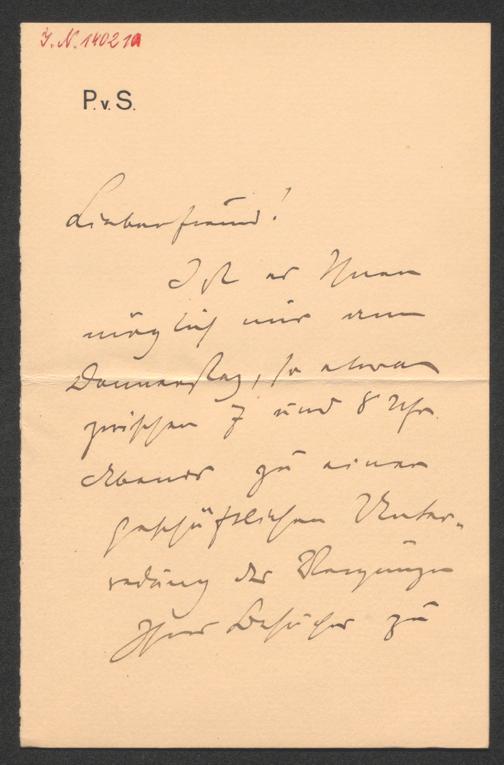 I.N. 140210
P.v.S.
Lieber Freund!
Ist es Ihnen
möglich mir am
Donnerstag, so etwa
zwischen 7 und 8 Uhr
Abends zu einer
geschäftlichen Unter-
redung das Vergnügen
Ihres Besuches zu